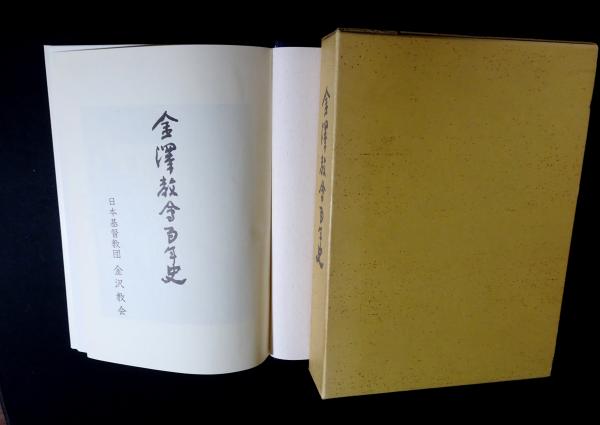 金澤教會百年史
日本基督教団 金沢教会
金澤教會百年史